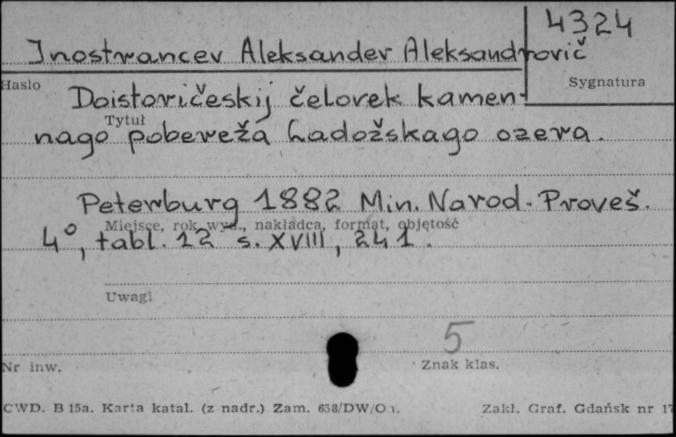 4324
Inostrancev Aleksander Aleksandrovič
Hasło
Sygnatura
Doistoričeskij čelovek kamen-
Tytuł
nago pobereža Ladožskago ozera.
Peterburg 1882 Min. Narod. Proveš.
Miejsce, rok wyd., nakładca, format, objętość
4°, tabl. 12 s. XVIII, 241.
Uwagi
5
Nr inw.
Znak klas.
CWD. B 15a. Karta katal. (z nadr.) Zam. 658/DW/O
Zakł. Graf. Gdańsk nr 17